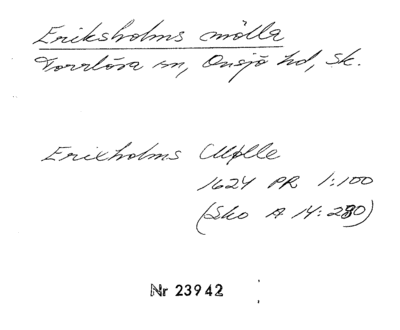 Eriksholms mölla
Torrlösa sn, Onsjö hd, Sk.
Erixholms Mølle
1624 PR 1:100
(Sko A 14:280)
Nr 23942